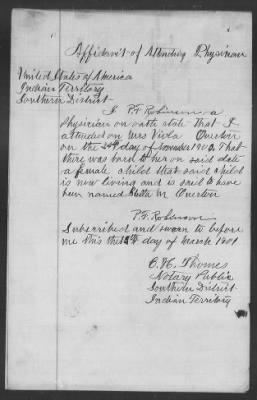 Affidavit of Attending Physician
United States of America
Indian Territory
Southern District
I P.T. Robinson a
Physician on oath state that I
attended on Mrs Viola Overton
on the 24th day of November 1900 That
there was born to her on said date
a female child that said child
is now living and is said to have
been named M. Overton
P.T. Robinson
Subscribed and sworn to before
me this the day of March 1901
Thomas
Notary Public
Southern District
Indian Territory